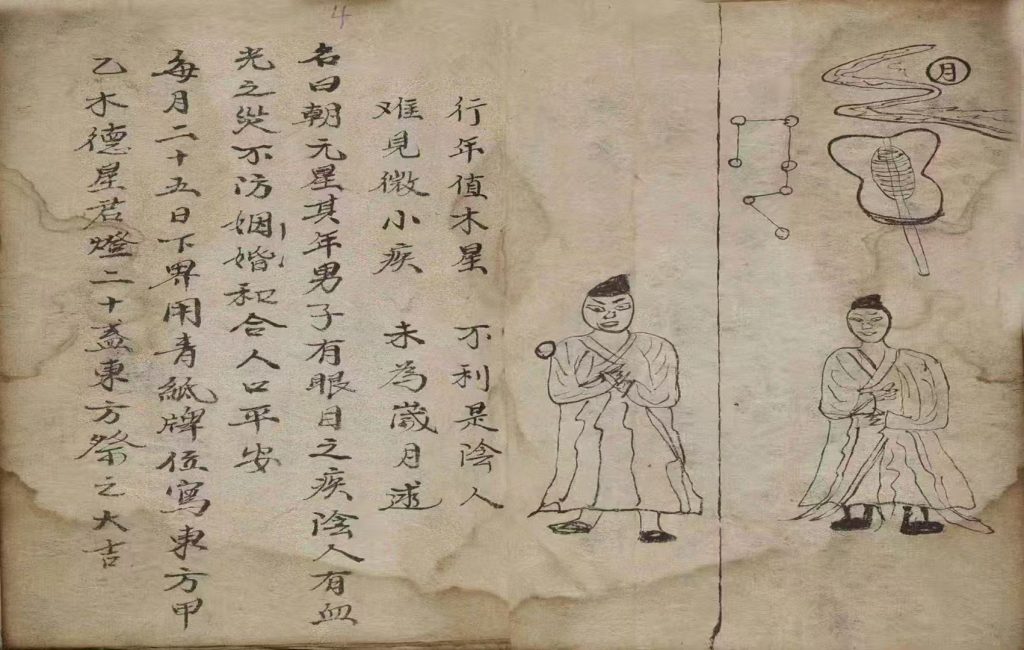 月
行年值木星 不利是陰人
难見微小疾 未為歲月逑
名曰朝元星其年男子有眼目之疾陰人有血
光之災不汸姻婚和合人口平安
每月二十五日下界用青紙牌位寫東方甲
乙木德星君燈二十盞東方祭之大吉
4